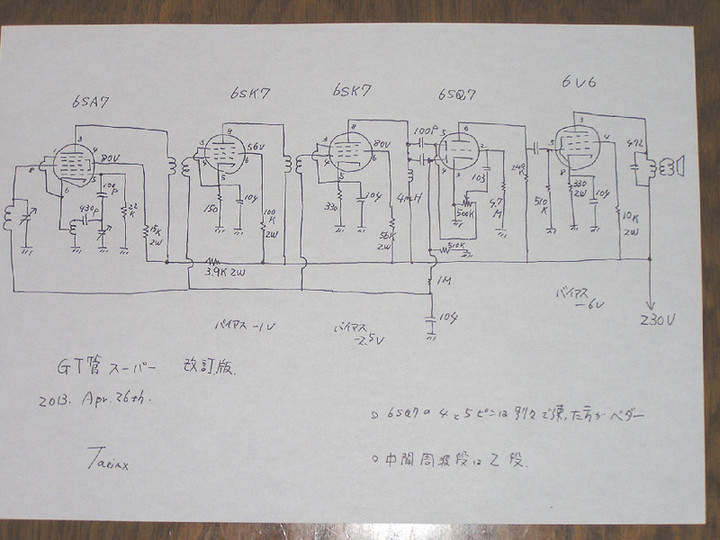 6SA7
6SK7
6SK7
6SQ7
6V6
80V
56V
80V
100P
472
100P
430P
22K
15K 2W
150
104
100K 2W
330
104
56K 2W
4mH
103
500K
4.7M
510K
1M
104
510K
330 2W
104
10K 2W
3.9K 2W
バイアス -1V
バイアス -2.5V
バイアス -6V
230V
GT管スーパー 改訂版.
2013. Apr. 26th.
6SQ7の4と5ピンは別々で使った方がベター
中間周波段は2段.